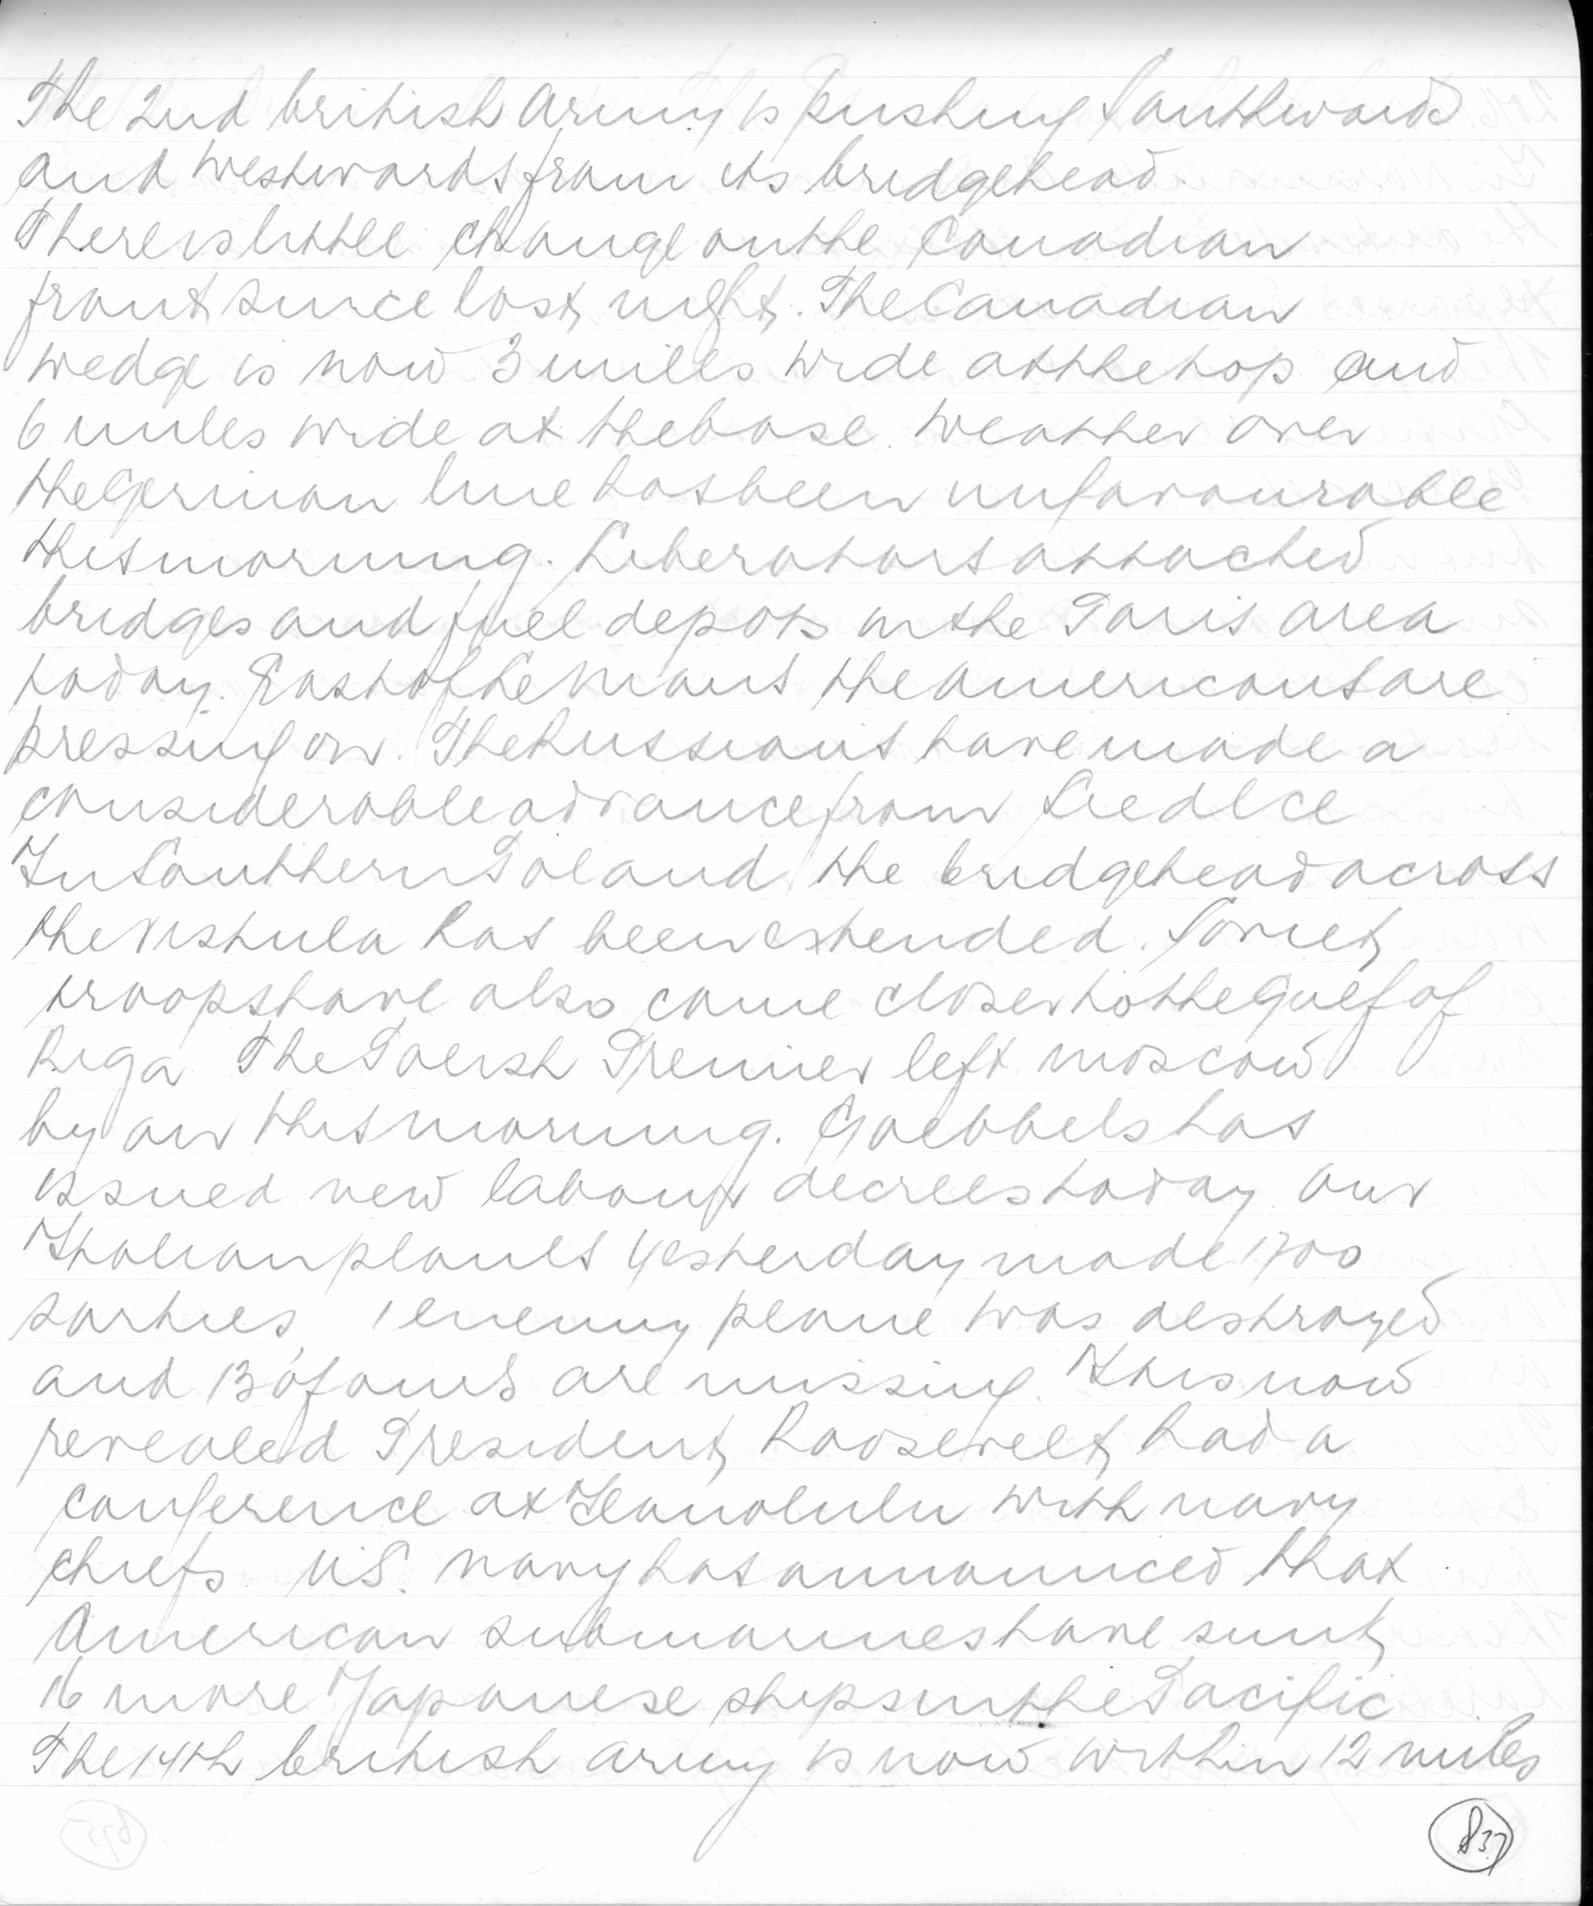 The 2nd british army is pushing Southwards
and westwards from its bridgehead.
There is little change on the Canadian
front since last night. The Canadian
wedge is now 3 miles wide at the top and
6 miles wide at the base. Weather over
the German line has been unfavourable
this morning. Liberators attacked
bridges and fuel depots in the Paris area
today. East of Le Mans the americans are
pressing on. The Russians have made a
considerable advance from Siedlce
In Southern Poland the bridgehead across
the Vistula has been extended. Soviet
troops have also come closer to the Gulf of
Riga The Polish Premier left moscow
by air this morning. Goebbels has
issued new labour decrees today. Our
Italian planes yesterday made 1700
sorties, 1 enemy plane was destroyed
and 13 of ours are missing. It is now
revealed President Roosevelt had a
conference at Honolulu with navy
chiefs. U.S. navy has announced that
American submarines have sunk
16 more Japanese ships in the Pacific
The 14th british army is now within 12 miles
837